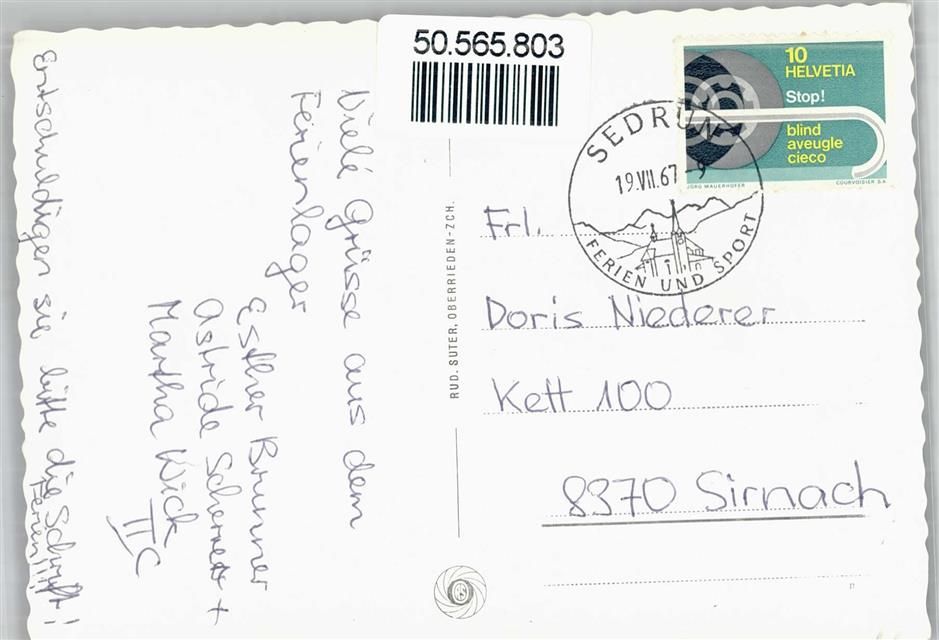 50.565.803
10
HELVETIA
Stop!
blind
aveugle
cieco
JÖRG MAUERHOFER
COURVOISIER S.A.
SEDRUN
19.VII.67-9
FERIEN UND SPORT
Viele Grüsse aus dem
Ferienlager
Esther Brunner
Astride
Martha Wick
II C
Entschuldigen sie bitte die Schrift!
Ferien!!!
RUD. SUTER, OBERRIEDEN-ZCH.
Frl.
Doris Niederer
Kett 100
8370 Sirnach